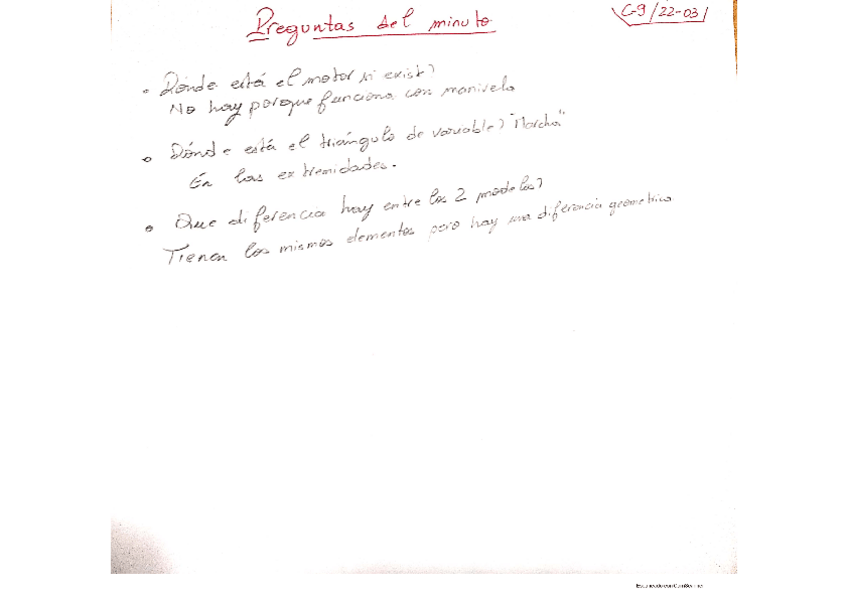 Preguntas del minuto
C-9/22-03/
• Dónde está el motor si exist?
No hay porque funciona con manivela
• Dónde está el triángulo de variable? "Marcha"
En las extremidades.
• Que diferencia hay entre los 2 modelos?
Tienen los mismos elementos pero hay una diferencia geometrica
Escaneado con CamScanner